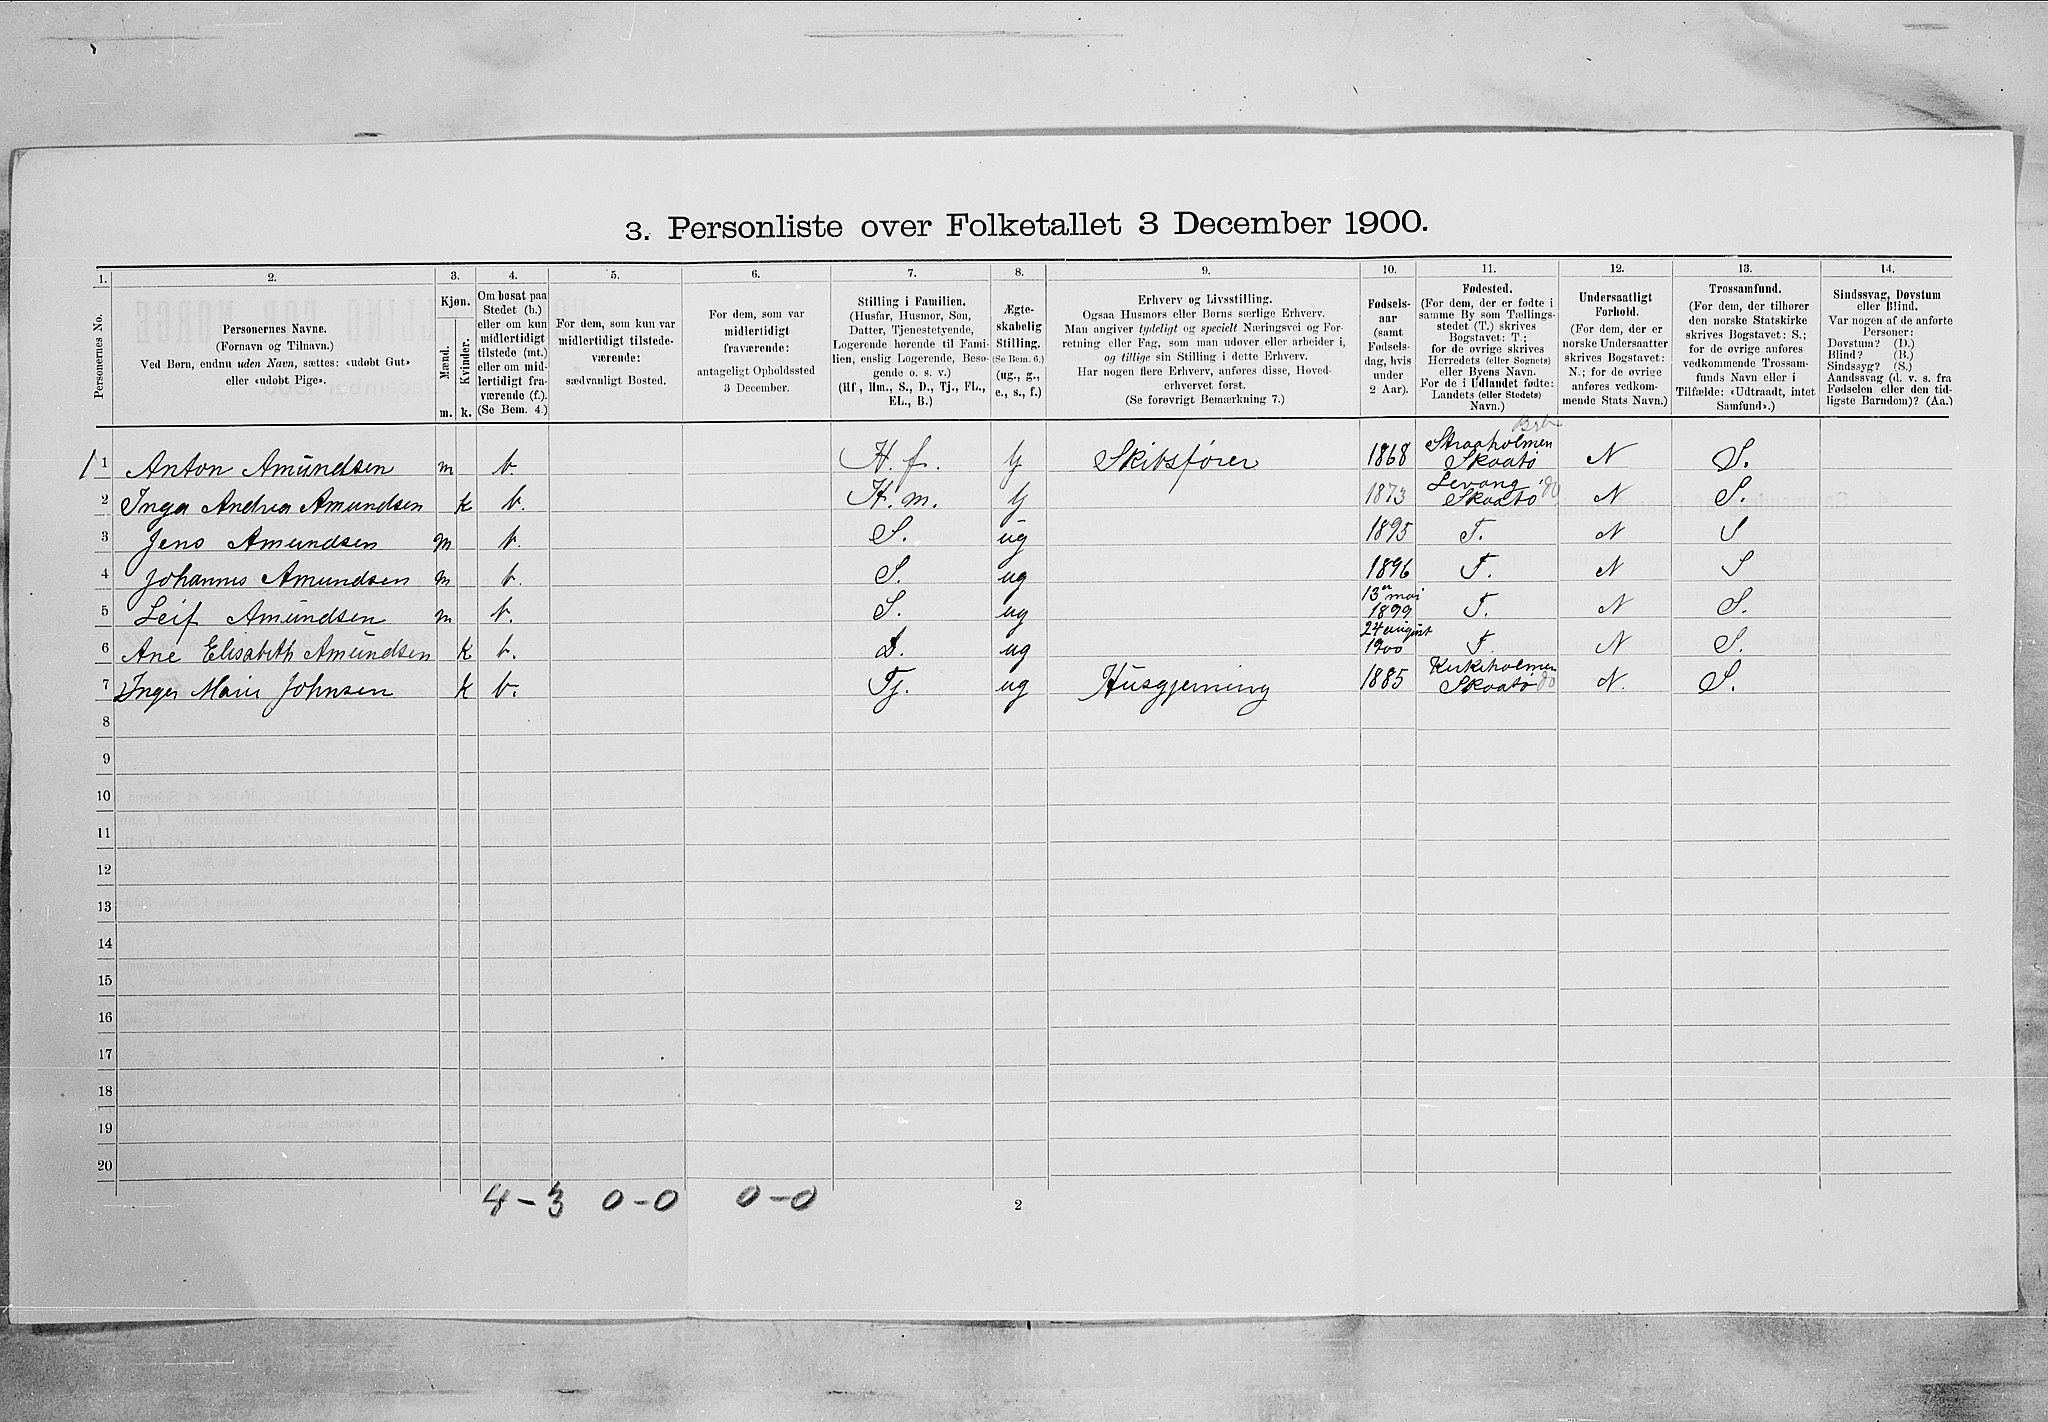 3. Personliste over Folketallet 3 December 1900.
1. 2. 3. 4. 5. 6. 7. 8. 9. 10. 11. 12. 13. 14.
Personernes No.
Personernes Navne.
(Fornavn og Tilnavn.)
Ved Børn, endnu uden Navn, sættes: «udøbt Gut»
eller «udøbt Pige».
Kjøn.
Mænd. Kvinder.
m. k.
Om bosat paa
Stedet (b.)
eller om kun
midlertidigt
tilstede (mt.)
eller om mid-
lertidigt fra-
værende (f.).
(Se Bem. 4.)
For dem, som kun var
midlertidigt tilstede-
værende:
sædvanligt Bosted.
For dem, som var
midlertidigt
fraværende:
antageligt Opholdssted
3 December.
Stilling i Familien.
(Husfar, Husmor, Søn,
Datter, Tjenestetyende,
Logerende hørende til Fami-
lien, enslig Logerende, Besø-
gende o. s. v.)
(Hf, Hm., S., D., Tj., FL.,
EL., B.)
Ægte-
skabelig
Stilling.
(Se Bem. 6.)
(ug., g.,
e., s., f.)
Erhverv og Livsstilling.
Ogsaa Husmors eller Børns særlige Erhverv.
Man angiver tydeligt og specielt Næringsvei og For-
retning eller Fag, som man udøver eller arbeider i,
og tillige sin Stilling i dette Erhverv.
Har nogen flere Erhverv, anføres disse, Hoved-
erhvervet først.
(Se forøvrigt Bemærkning 7.)
Fødsels-
aar
(samt
Fødsels-
dag, hvis
under
2 Aar).
Fødested.
(For dem, der er fødte i
samme By som Tællings-
stedet (T.) skrives
Bogstavet: T.;
for de øvrige skrives
Herredets (eller Sognets)
eller Byens Navn.
For de i Udlandet fødte:
Landets (eller Stedets)
Navn.)
Undersaatligt
Forhold.
(For dem, der er
norske Undersaatter
skrives Bogstavet:
N.; for de øvrige
anføres vedkom-
mende Stats Navn.)
Trossamfund.
(For dem, der tilhører
den norske Statskirke
skrives Bogstavet: S.;
for de øvrige anføres
vedkommende Trossam-
funds Navn eller i
Tilfælde: «Udtraadt, intet
Samfund».)
Sindssvag, Døvstum
eller Blind.
Var nogen af de anførte
Personer:
Døvstum? (D.)
Blind? (B.)
Sindssyg? (S.)
Aandssvag (d. v. s. fra
Fødselen eller den tid-
ligste Barndom)? (Aa.)
1 1 Anton Amundsen m b. H.f. G Skibsfører 1868 Straaholmen Skaatø N S.
2 Inga Andrea Amundsen K b. H.m. G 1873 Levang Skaatø do N S.
3 Jens Amundsen m b. S. ug 1895 T. N S
4 Johannes Amundsen m b. S. ug 1896 T. N S
5 Leif Amundsen m b. S. ug 13en mai 1899 T. N S.
6 Ane Elisabeth Amundsen K b. D. ug 24 august 1900 T. N S.
7 Inger Marie Johnsen K b. Tj. ug Husgjerning 1885 Kirkeholmen Skaatø do N. S.
8
9
10
11
12
13
14
15
16
17
18
19
20
4-3 0-0 0-0
2